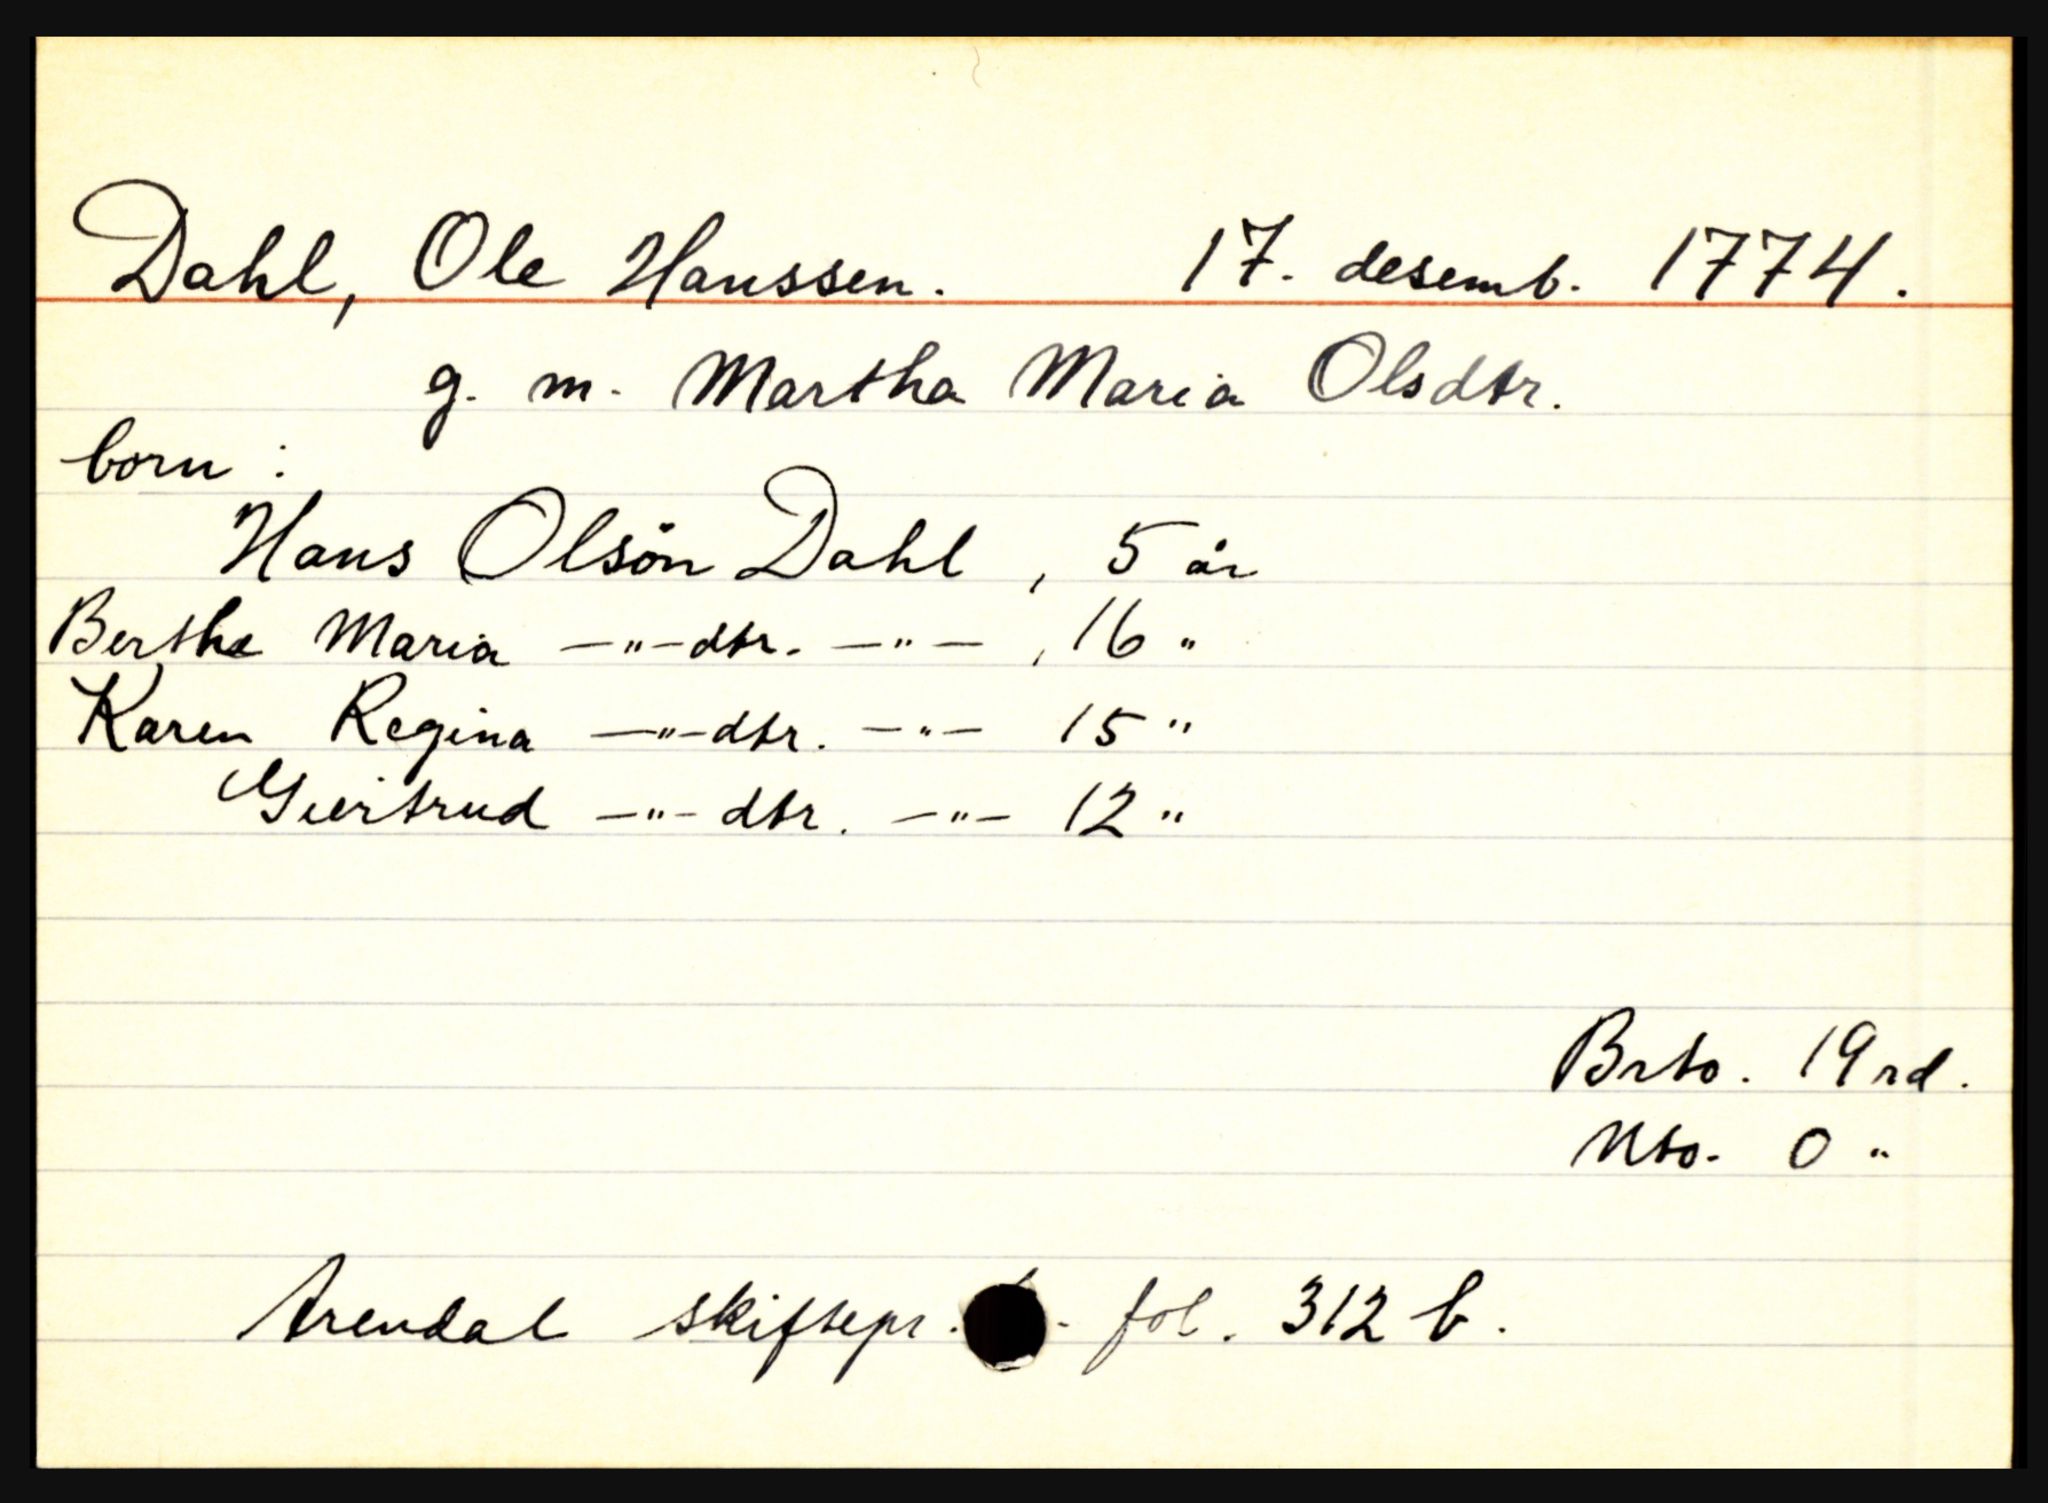 Dahl, Ole Hanssen. 17. desemb. 1774.
g. m. Martha Maria Olsdtr.
born :
Hans Olsön Dahl , 5 år
Berthe Maria —"—dtr. —"— , 16 "
Karen Regina —"—dtr. —"— 15 "
Giertrud —"— dtr. —"— 12 "
Brto. 19 rd.
Nto. 0 "
Arendal skiftepr. fol. 312 b.